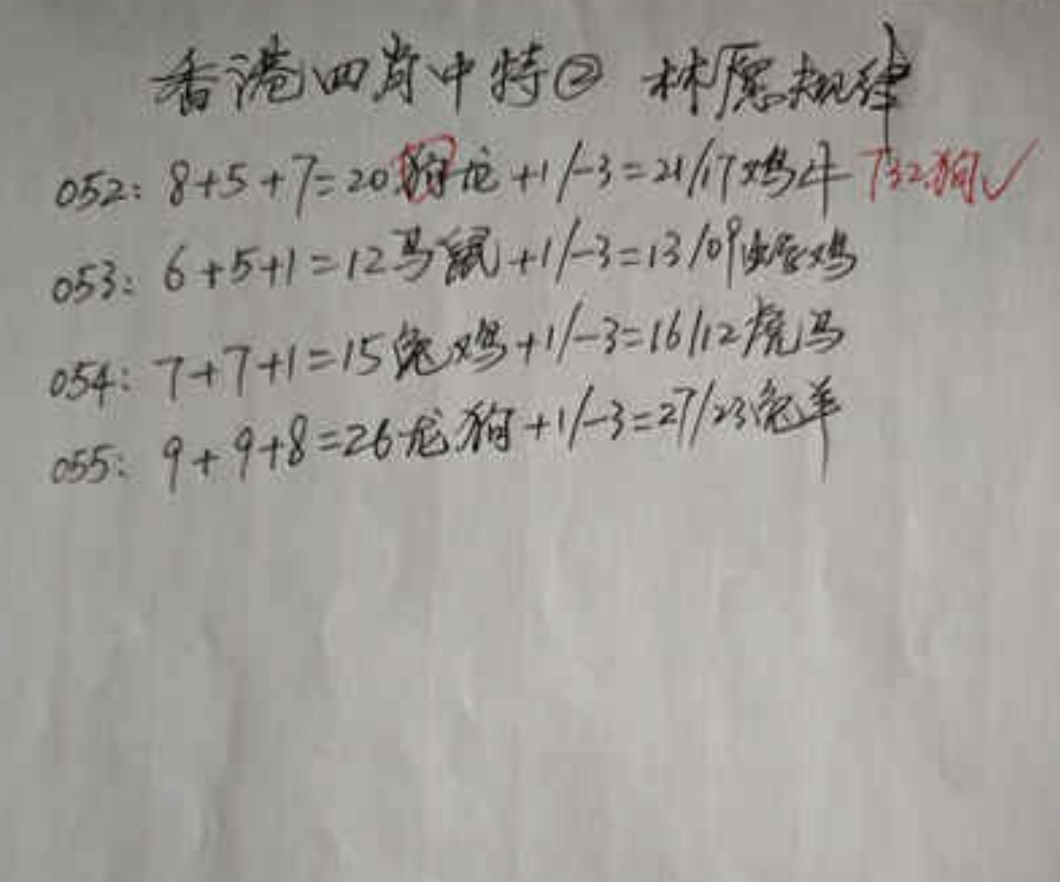 香港四肖中特② 林愿规律
052: 8+5+7=20狗龙+1/-3=21/17鸡牛 T32.狗✓
053: 6+5+1=12马鼠+1/-3=13/09蛇鸡
054: 7+7+1=15兔鸡+1/-3=16/12虎马
055: 9+9+8=26龙狗+1/-3=27/23兔羊